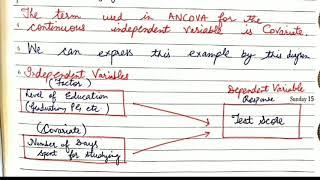 The term used in ANCOVA for the
continuous independent variable is Covariate.
We can express this example by this diagram
Independent Variables
(Factor)
Level of Education
(Graduation, PG etc)
(Covariate)
Number of Days
spent for studying
Dependent Variable
Response
Sunday 15
Test Score